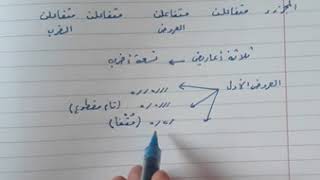 متفاعلن متفاعلن متفاعلن متفاعلن
العروض الضرب
ثلاثة أعاريض ← تسعة أضرب
العروض الأول
(تام مقطوع)
(مُتْفا)